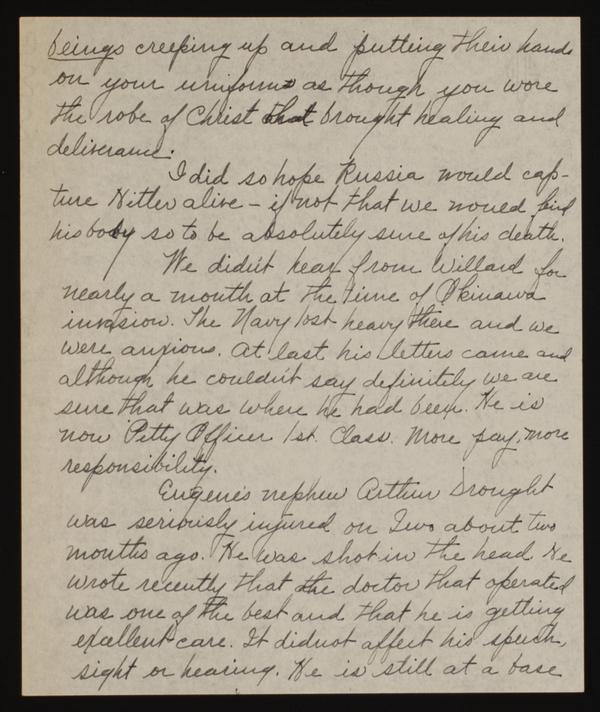 beings creeping up and putting their hands
on your uniforms as though you wore
the robe of Christ that brought healing and
deliverance.
I did so hope Russia would cap-
ture Hitler alive - if not that we would find
his body so to be absolutely sure of his death.
We didn't hear from Willard for
nearly a month at the time of Okinawa
invasion. The Navy lost heavy there and we
were anxious. At last his letters came and
although he couldn't say definitely we are
sure that was where he had been. He is
now Petty Officer 1st. Class. More pay, more
responsibility.
Eugene's nephew Arthur Drought
was seriously injured on Iwo about two
months ago. He was shot in the head. He
wrote recently that the doctor that operated
was one of the best and that he is getting
excellent care. It didnot affect his speech,
sight or hearing. He is still at a base